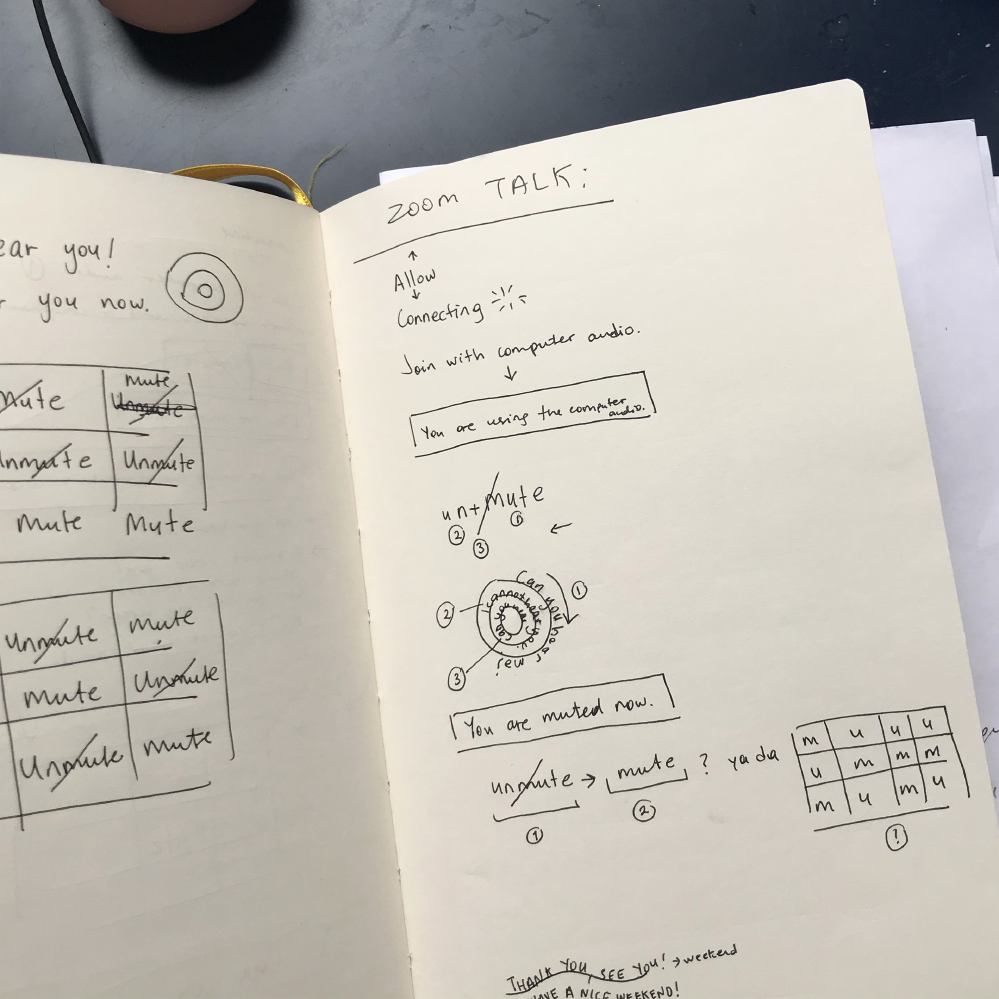 ear you!
you now.
Mute Mute
Unmute
Unmute Unmute
Mute Mute
Unmute Mute
Mute Unmute
Unmute Mute
ZOOM TALK:
Allow
Connecting
Join with computer audio.
You are using the computer
audio.
un+mute
2 3 1
Can you hear
I cannot hear you.
1
2
3
You are muted now.
unmute → mute ? ya da
1 2
m u u u
u m m m
m u m u
?
THANK YOU, SEE YOU! → weekend
HAVE A NICE WEEKEND!